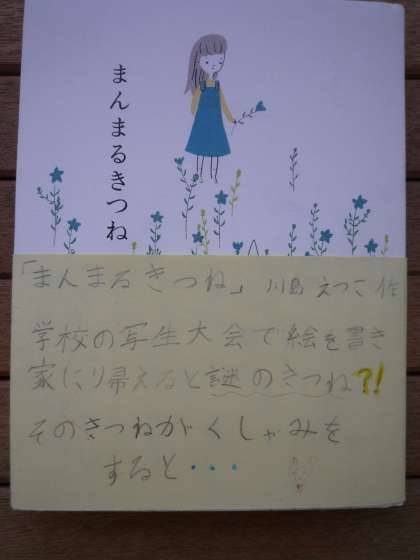 まんまるきつね
「まんまるきつね」川島 えつこ 作
学校の写生大会で絵を書き
家にり帚えると謎のきつね?!
そのきつねがくしゃみを
すると・・・